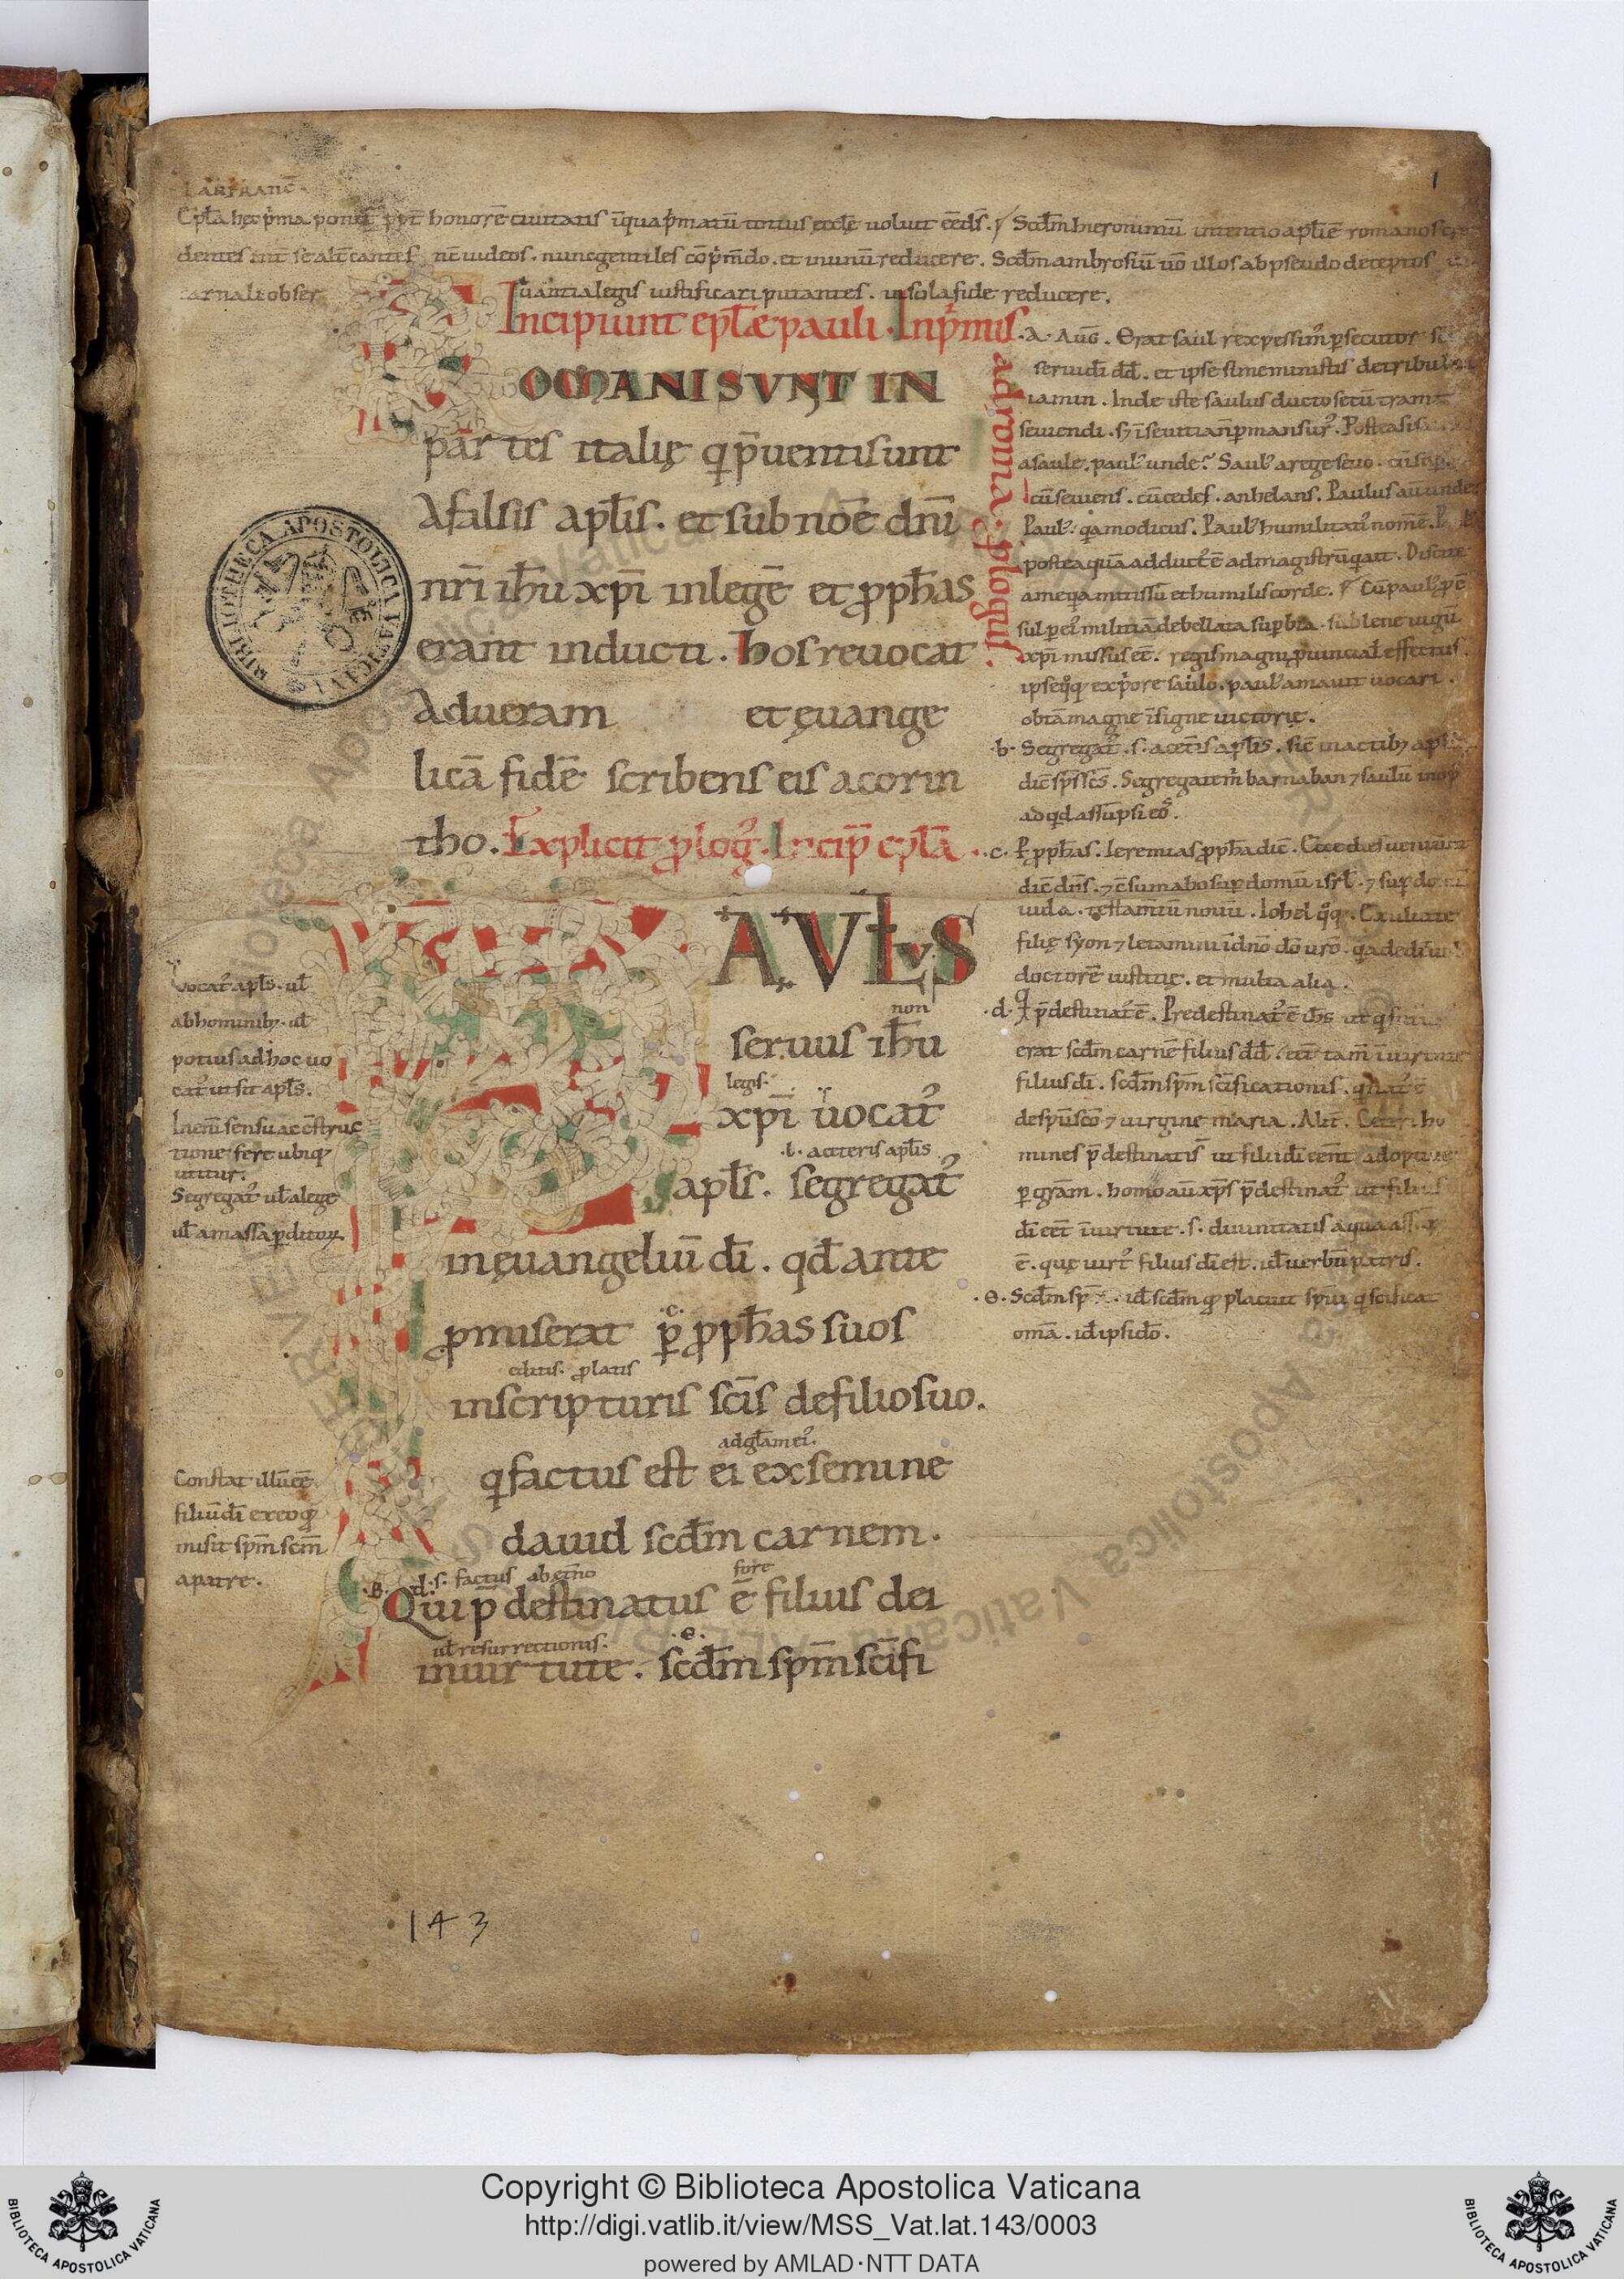 LANFRANC̄
Ep̄la hęc p̄ma ponit᷑ ꝓpt̄ honorē ciuitatis ī qua p̄matū totius ęccłe uoluit eē d̄s. Scd̄m hieronimū intentio apłi ē romanos cre
dentes int̄ se altcantes nc̄ iudeos. nunc gentiles cōp̄m̄do. et in unū reducere. Scd̄m ambrosiū ū̄o illos ab pseudo deceptos
carnali obser uantia legis iustificari putantes. in sola fide reducere.
Incipiunt epłæ pauli. In p̄mis
ad romanos
ꝓlogus.
ROMANI SVNT IN
partes italię q̄ p̄uenti sunt
A falsis apłis. et sub noē dn̄i
nr̄i ih̄u xp̄i in legē et ꝓph̄as
erant inducti. hos reuocat
Ad ueram et ęuange
licā fidē scribens eis a corin
tho. Explicit ꝓlog᷒. Incip̄ ep̄la
PAVLVS
non
seruus ih̄u
legis.
xp̄i uocat᷒
.i. a ceteris apłis
apłs. segregat᷒
in ęuangeliū dī. qd̄ ante
.c.
ꝓmiserat ꝑ ꝓph̄as suos
editis. ꝓlatis
in scripturis sc̄is de filio suo.
ad głam ei᷒.
q̄ factus est ei ex semine
dauid scd̄m carnem.
.d. s. factus ab et̄no fore
Qui p̄destinatus ē filius dei
uł resurrectionis. .e.
in uirtute. scd̄m spm̄ sc̄ifi
Vocat᷒ apłs. uł
ab hominib; uł
potius ad hoc uo
cat᷒ ut sit apłs.
In em̄ sensu ac c̄struc
tione fere ubiq;
utitur.
Segregat᷒ uł a lege
uł a massa ꝑditorū
Constat illū eē
filiū dī ex eo qd̄
misit spm̄ scm̄
a patre.
.A. AuG. Erat saul rex pessim᷒ ꝑsecutor
serui dī dd̄. et ipse si meministis de tribu
iamin. Inde iste saulus ducto secū tramite
seuiendi. s; ī seuitia n̄ ꝑmansur᷒. Postea
a saule. paul᷒ unde? Saul᷒ a rege seuo.
cū seuiens. cū cedes. anhelans. Paulus au unde
Paul᷒. q̄a modicus. Paul᷒ humilitat᷒ nom̄ ē.
postea quā adduct᷒ ē ad magistrū q̄ ait. Discite
a me q̄a mitis sū et humilis corde. Cū paul᷒
sul ꝑ ei᷒ militiā debellata suꝑbia. sub lene iugū
xp̄i missus est. regis magni ꝓuincial̄ effectus.
ipse q̄q; ex p̄ore saulo. paul᷒ amauit uocari.
ob tā magnę īsigne uictorię.
.b. Segregat᷒ .s. a cet̄is apłis. sic̄ in actib;
dic̄ sp̄s sc̄s. Segregate m̄ barnaban ⁊ saulū in op᷒
ad qd̄ assūpsi eos.
.c. P̄ ꝓph̄as. Ieremias ꝓph̄a dic̄. Ecce dies ueniunt
dic̄ dn̄s. ⁊ c̄sumabo suꝑ domū isrł. ⁊ suꝑ domū
iuda. testam̄tū nouū. Iohel q̄q;. Exultate
filię syon ⁊ letamini ī dn̄o dō ur̄o. q̄a dedit uob
doctorē iustitię. et multa alia.
.d. Q p̄destinat᷒ ē. Predestinat᷒ ē ih̄s ut q̄
erat scd̄m carnē filius dd̄. eēt tam̄ ī uirtute
filius dī. scd̄m spm̄ sc̄ificationis. q̄a nat᷒ ē
de spū scō ⁊ uirgine maria. Alit̄. Ceteri ho
mines p̄destinatis ut filii dī eēnt adoptiue
ꝑ gr̄am. homo aū xp̄s p̄destinat᷒ ut filius
dī eēt ī uirtute. s. diuinitatis a qua
ē. quę uirt᷒ filius dī est. id̄ uerbū patris.
.e. Scd̄m sp̄m. id̄ scd̄m qd̄ placuit spiū q̄ sc̄ificat
om̄a. id̄ ipsi dō.
1
143
BIBLIOTHECA APOSTOLICA VATICANA
Copyright © Biblioteca Apostolica Vaticana
http://digi.vatlib.it/view/MSS_Vat.lat.143/0003
powered by AMLAD·NTT DATA
BIBLIOTECA APOSTOLICA VATICANA
BIBLIOTECA APOSTOLICA VATICANA